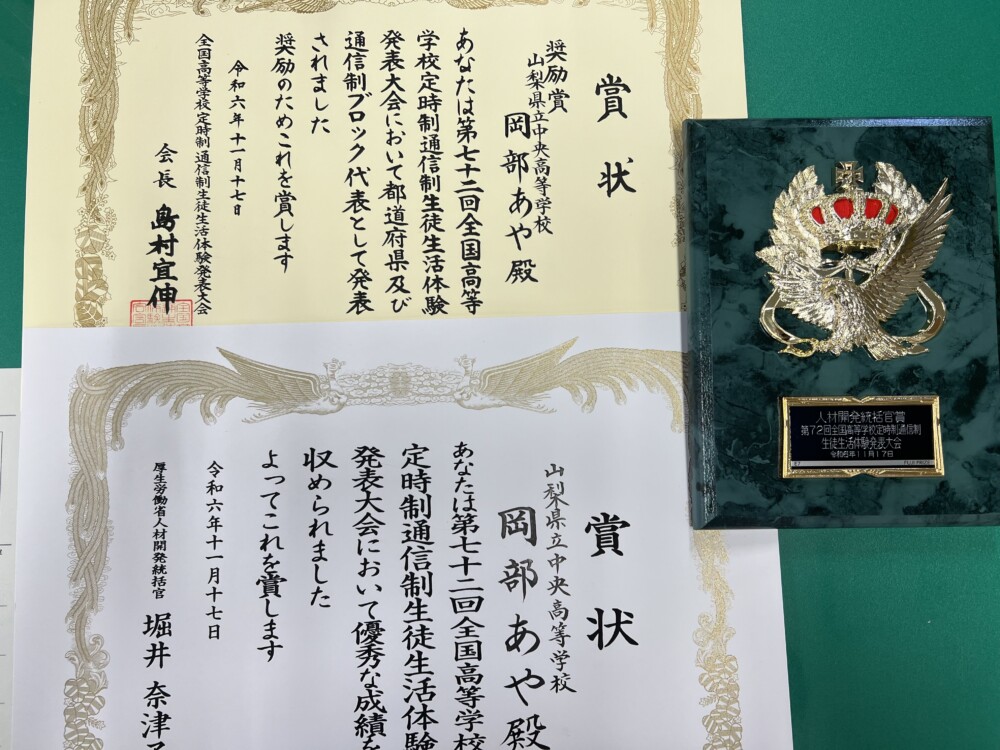 賞状
奨励賞
山梨県立中央高等学校
岡部あや殿
あなたは第七十二回全国高等
学校定時制通信制生徒生活体験
発表大会において都道府県及び
通信制ブロック代表として発表
されました
奨励のためこれを賞します
令和六年十一月十七日
全国高等学校定時制通信制生徒生活体験発表大会
会長 島村宜伸
賞状
山梨県立中央高等学校
岡部あや殿
あなたは第七十二回全国高等学校
定時制通信制生徒生活体験
発表大会において優秀な成績を
収められました
よってこれを賞します
令和六年十一月十七日
厚生労働省人材開発統括官
堀井 奈津
人材開発統括官賞
第72回全国高等学校定時制通信制
生徒生活体験発表大会
令和6年11月17日